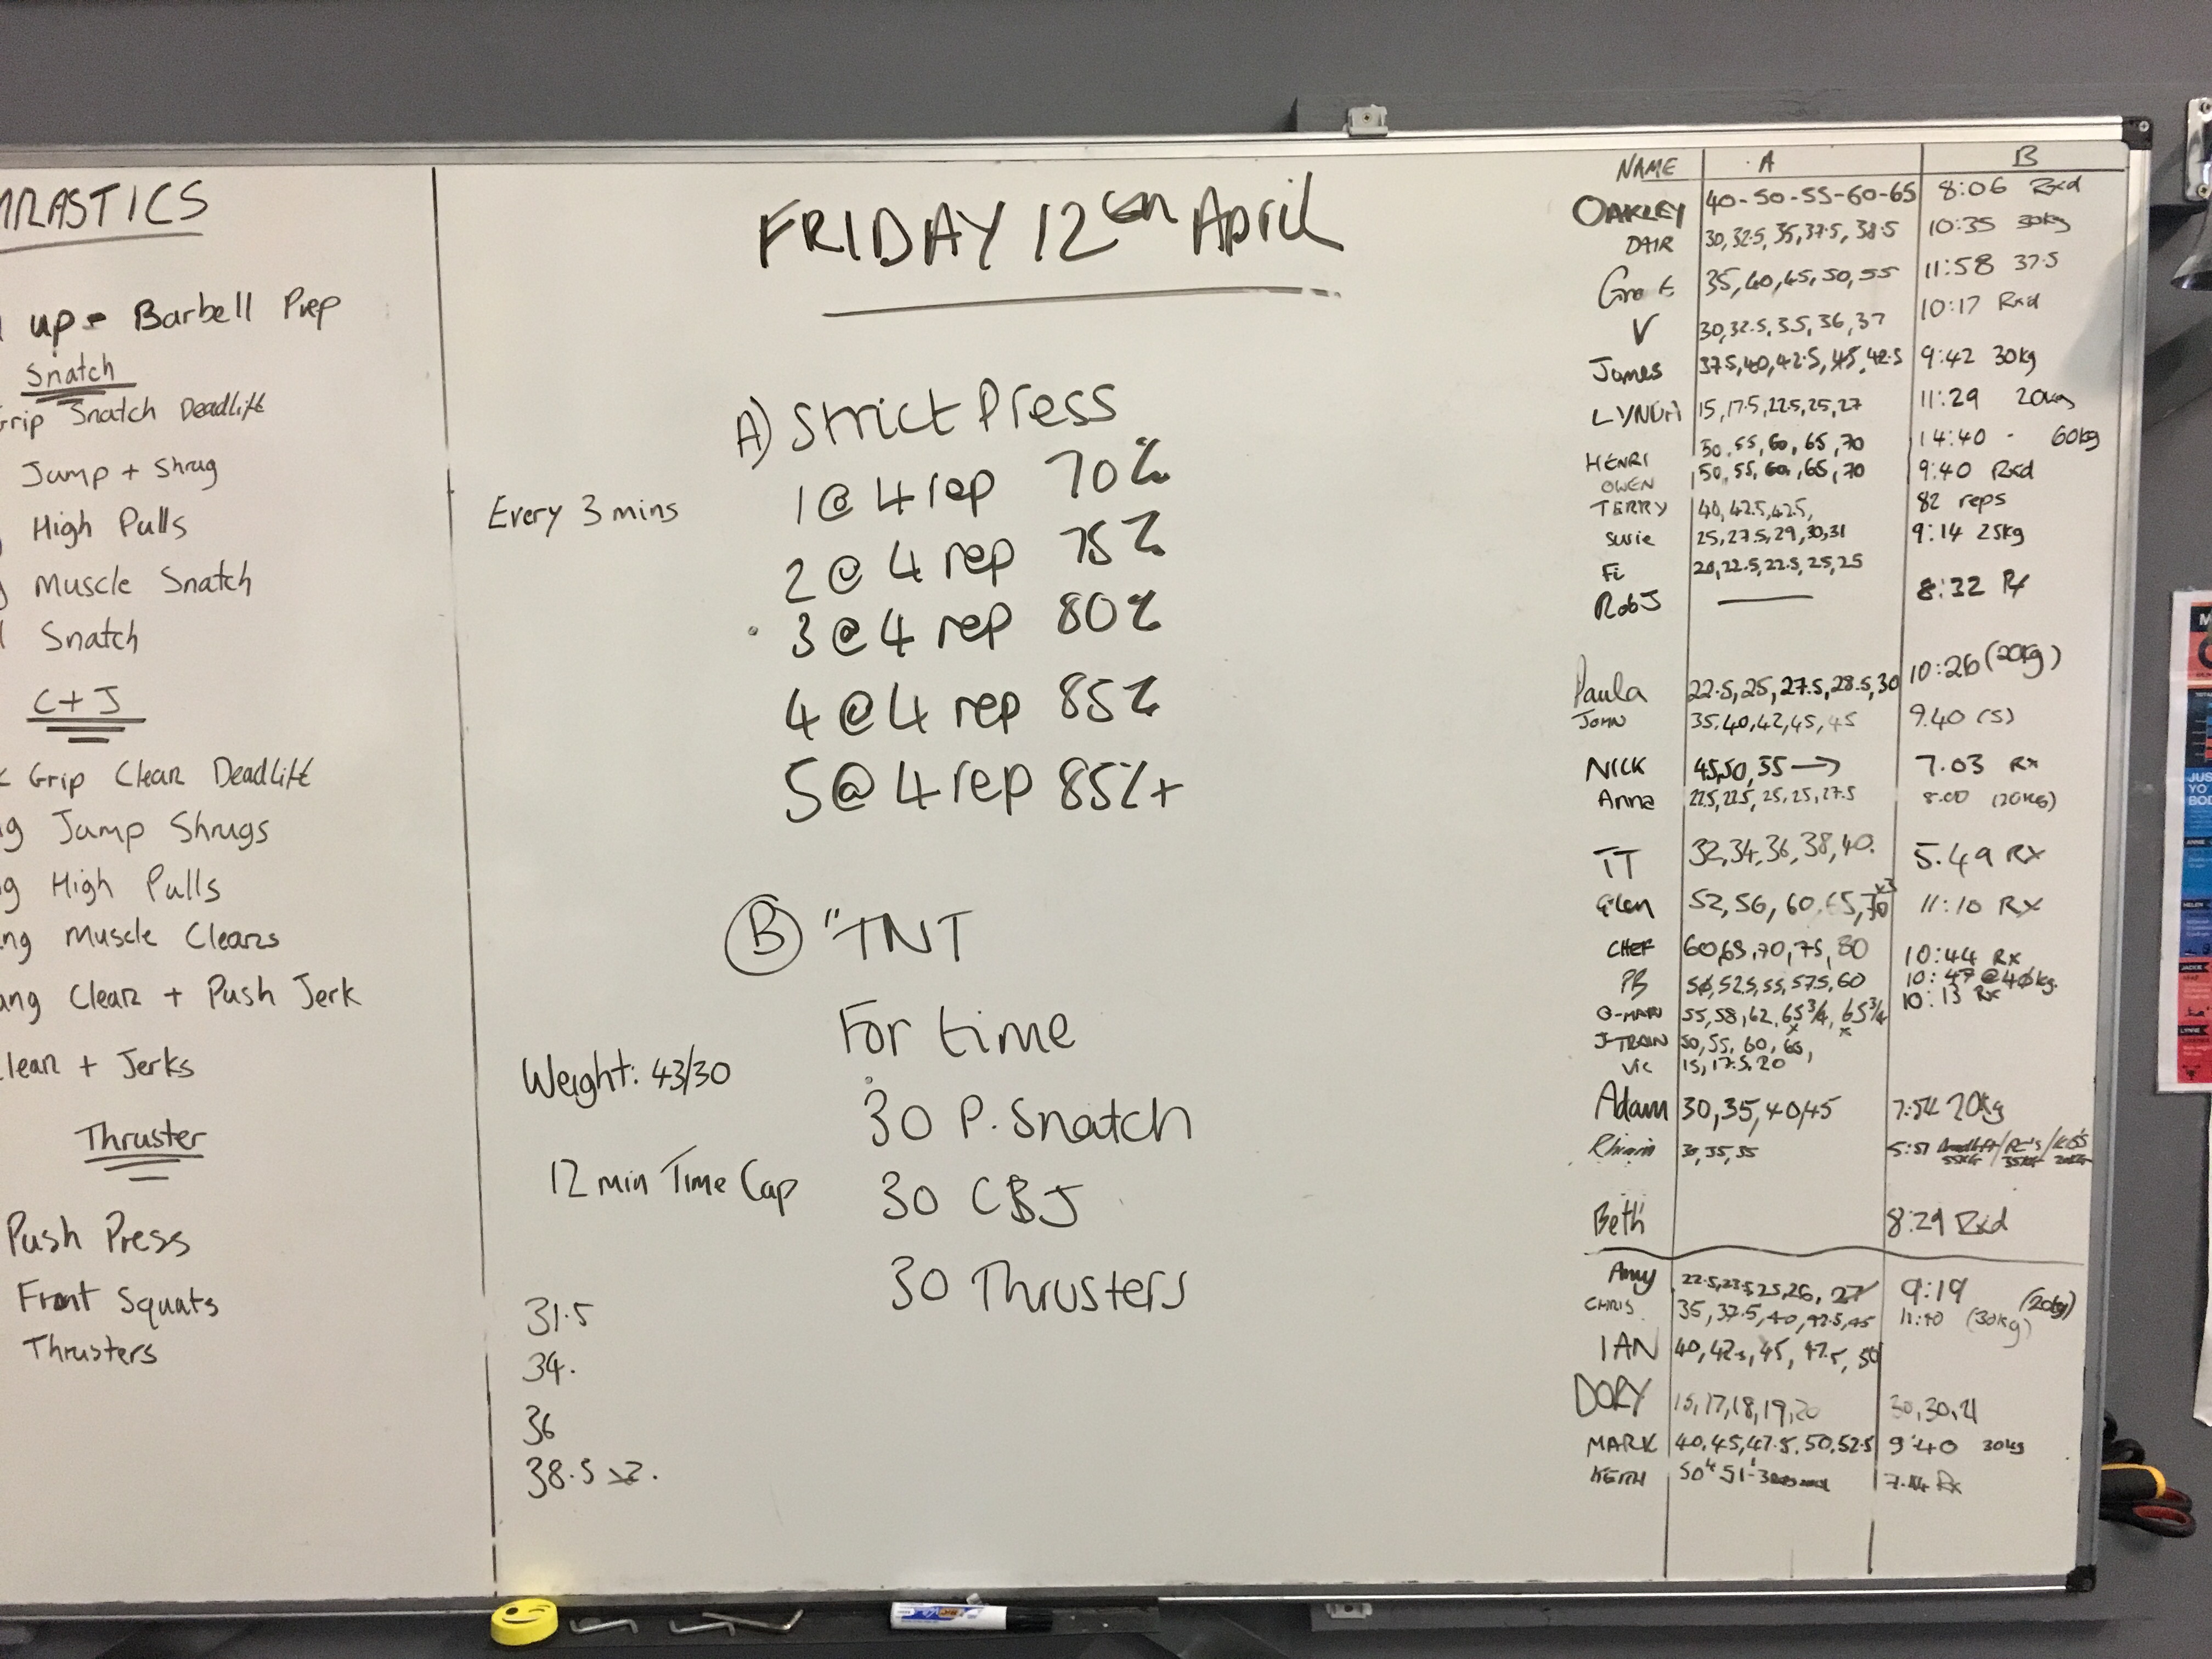 up - Barbell Prep
Snatch
Grip Snatch Deadlift
Jump + Shrug
High Pulls
Muscle Snatch
Snatch
C+J
Grip Clean Deadlift
Jump Shrugs
High Pulls
Muscle Cleans
Clean + Push Jerk
Clean + Jerks
Thruster
Push Press
Front Squats
Thrusters
FRIDAY 12th April
A) Strict Press
Every 3 mins
1 @ 4 rep 70%
2 @ 4 rep 75%
3 @ 4 rep 80%
4 @ 4 rep 85%
5 @ 4 rep 85%+
B "TNT
For time
Weight: 43/30
30 P. Snatch
12 min Time Cap
30 CBJ
30 Thrusters
31.5
34.
36
38.5 x2.
NAME A B
OAKLEY 40-50-55-60-65 8:06 Rxd
DAIR 30, 32.5, 35, 37.5, 38.5 10:35 30kg
35, 40, 45, 50, 55 11:58 37.5
V 30, 32.5, 35, 36, 37 10:17 Rxd
James 37.5, 40, 42.5, 45, 42.5 9:42 30kg
15, 17.5, 22.5, 25, 27 11:29 20kg
HENRI 50, 55, 60, 65, 70 14:40 - 60kg
OWEN 50, 55, 60, 65, 70 9:40 Rxd
TERRY 40, 42.5, 42.5, 82 reps
Susie 25, 27.5, 29, 30, 31 9:14 25kg
Fi 20, 22.5, 22.5, 25, 25
Rob J 8:32 Rx
Paula 22.5, 25, 27.5, 28.5, 30 10:26 (20kg)
JOHN 35, 40, 42, 45, 45 9.40 (S)
NICK 45, 50, 35 → 7.03 Rx
Anna 22.5, 22.5, 25, 25, 27.5 8.00 (20KG)
TT 32, 34, 36, 38, 40. 5.49 RX
Glen 52, 56, 60, 65, 70 x3 11:10 RX
CHEF 60, 65, 70, 75, 80 10:44 Rx
PB 50, 52.5, 55, 57.5, 60 10:47 @ 40kg.
G-MAN 55, 58, 62, 65 3/4, 65 3/4 10:13 Rx
J-TRAIN 50, 55, 60, 65,
Vic 15, 17.5, 20
Adam 30, 35, 40, 45 20kg
30, 35, 35 5:57
Beth 8:29 Rxd
Amy 22.5, 23.5, 25, 26, 27 9:19 (20kg)
CHRIS 35, 37.5, 40, 42.5, 45 11:40 (30kg)
IAN 40, 42.5, 45, 47.5, 50
DORY 15, 17, 18, 19, 20 30, 30, 21
MARK 40, 45, 47.5, 50, 52.5 9:40 30kg
KEITH 50 51 Rx